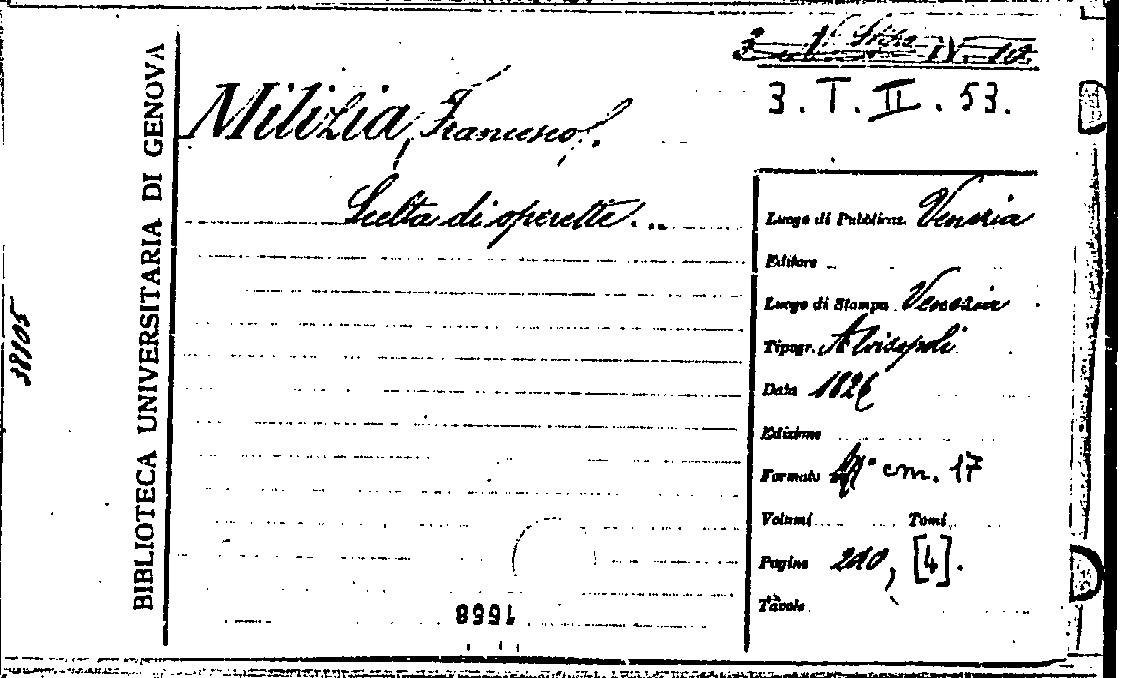 3. T. II. 53.
Milizia, Francesco.
Scelta di operette...
Luogo di Pubblicaz. Venezia
Editore
Luogo di Stampa Venezia
Tipogr. Alvisopoli
Data 1826
Edizione
Formato cm. 17
Volumi Tomi
Pagine 210, [4].
Tavole
BIBLIOTECA UNIVERSITARIA DI GENOVA
38105